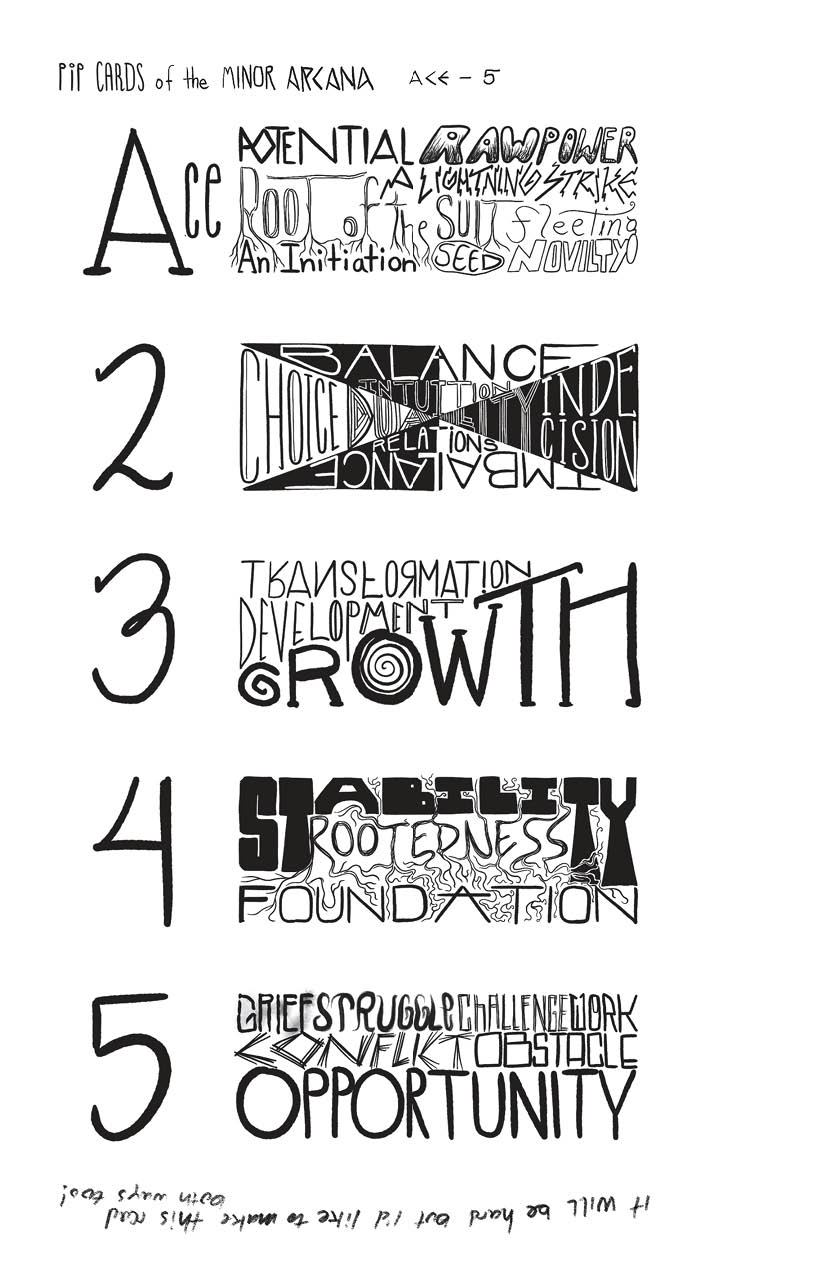 PiP CARDS of the MINOR ARCANA ACE - 5
Ace
POTENTIAL RAW POWER
A LIGHTNING STRIKE
ROOT of the SUIT fleeting
An Initiation SEED NOVILTY
2
BALANCE
INTUITION
CHOICE DUALITY INDE
CISION
RELATIONS
IMBALANCE
3
TRANSFORMATION
DEVELOPMENT
GROWTH
4
STABILITY
ROOTEDNESS
FOUNDATION
5
GRIEF STRUGGLE CHALLENGE WORK
CONFLICT OBSTACLE
OPPORTUNITY
It will be hard but I'd like to make this read
both ways too!